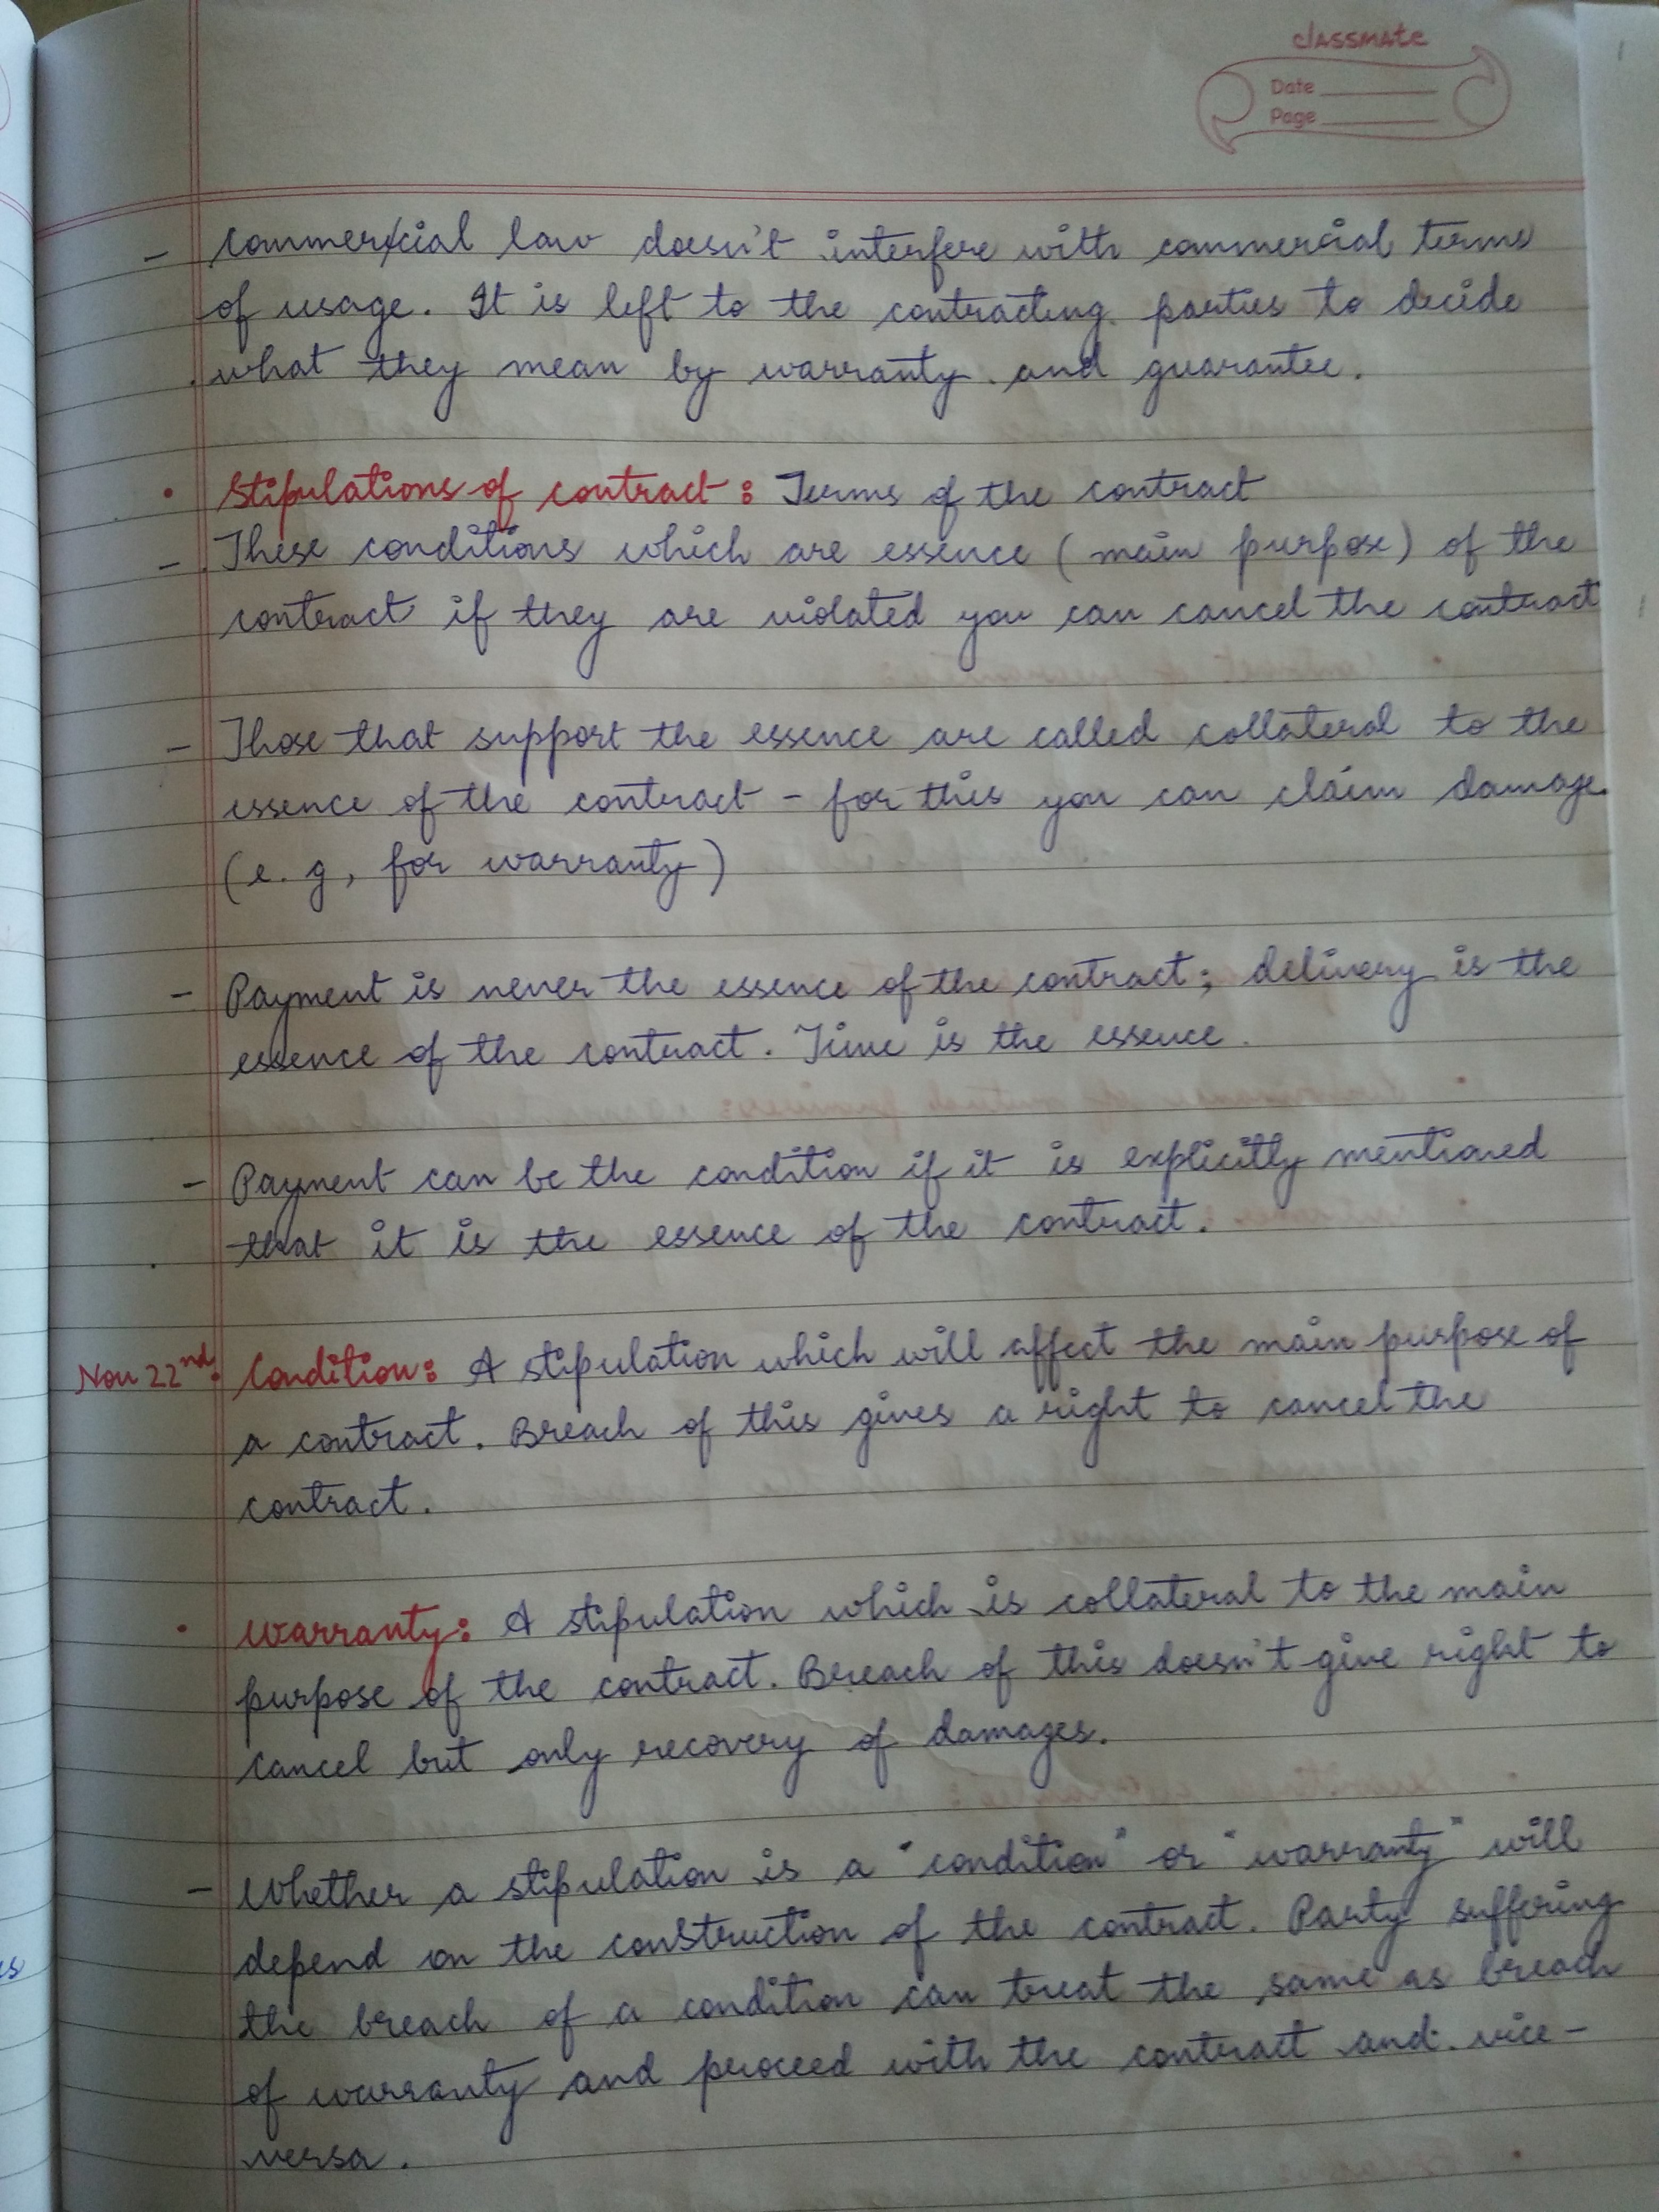 classmate
Date
Page
- Commercial law doesn't interfere with commercial terms
of usage. It is left to the contracting parties to decide
what they mean by warranty and guarantee.
• Stipulations of contract: Terms of the contract
- These conditions which are essence (main purpose) of the
contract if they are violated you can cancel the contract
- Those that support the essence are called collateral to the
essence of the contract - for this you can claim damage.
(e.g, for warranty)
- Payment is never the essence of the contract; delivery is the
essence of the contract. Time is the essence.
- Payment can be the condition if it is explicitly mentioned
that it is the essence of the contract.
Nov 22nd • Condition: A stipulation which will affect the main purpose of
a contract. Breach of this gives a right to cancel the
contract.
• Warranty: A stipulation which is collateral to the main
purpose of the contract. Breach of this doesn't give right to
cancel but only recovery of damages.
- Whether a stipulation is a "condition" or "warranty" will
depend on the construction of the contract. Party suffering
the breach of a condition can treat the same as breach
of warranty and proceed with the contract and vice-
versa.